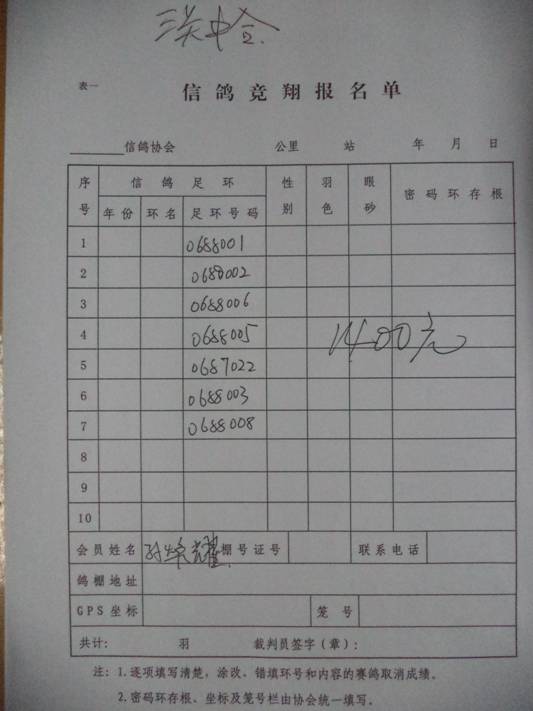 三关中奖
表一
信鸽竞翔报名单
信鸽协会 公里 站 年 月 日
序号 信鸽足环 性别 羽色 眼砂 密码环存根
年份 环名 足环号码
1 0688001
2 0688002
3 0688006
4 0688005 1400元
5 0687022
6 0688003
7 0688008
8
9
10
会员姓名 棚号证号 联系电话
鸽棚地址
GPS坐标 笼号
共计: 羽 裁判员签字(章):
注: 1.逐项填写清楚,涂改、错填环号和内容的赛鸽取消成绩。
2.密码环存根、坐标及笼号栏由协会统一填写。